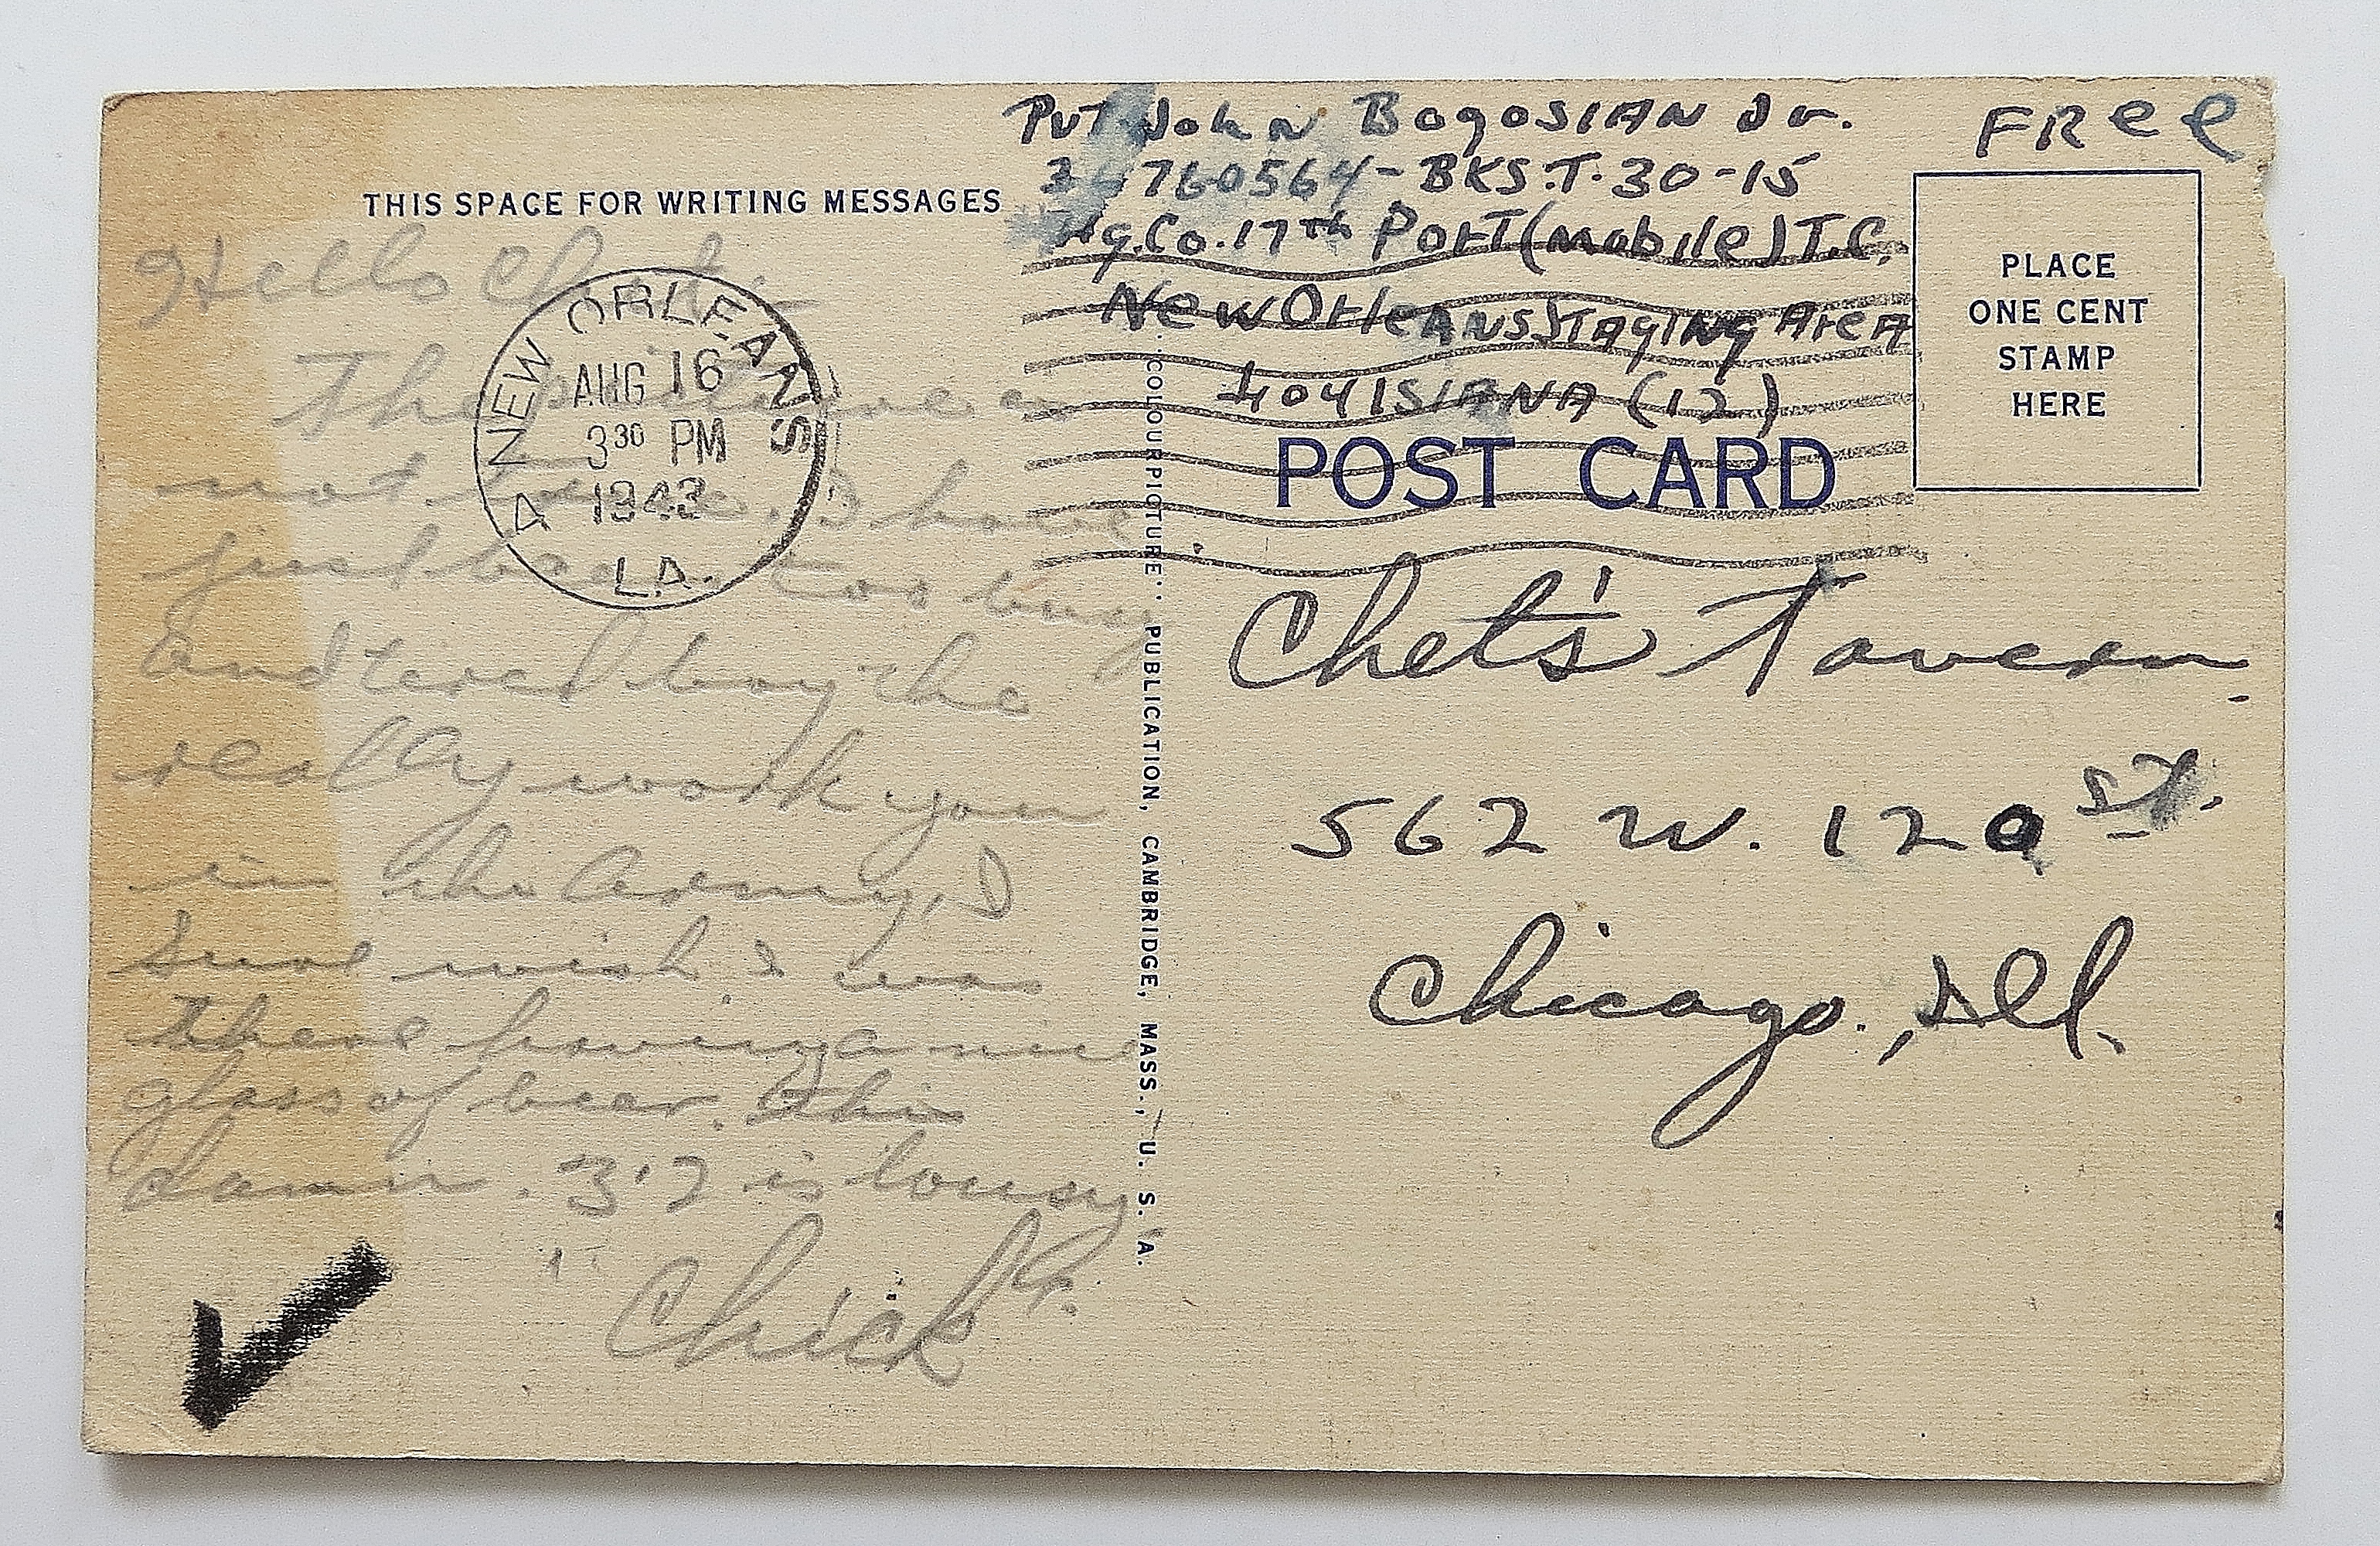 Pvt John BogosIAN Jr.
36760564-BKS.T.30-15
Hq.Co.17th Port(mobile)T.C.
New OrleANS StAgINg AreA
LouISIANA (12)
FRee
PLACE
ONE CENT
STAMP
HERE
THIS SPACE FOR WRITING MESSAGES
POST CARD
NEW ORLEANS
AUG 16
3 30 PM
1943
LA.
Hello
The
not I have
just been too busy
and tered boy the
really work you
in the Army, I
sure wish I was
there having a nice
glass of beer. This
damn. 3.2 is lousy
Chick
COLOURPICTURE PUBLICATION, CAMBRIDGE, MASS., U. S. A.
Chet's Tavern
562 W. 120 St.
Chicago, Ill.